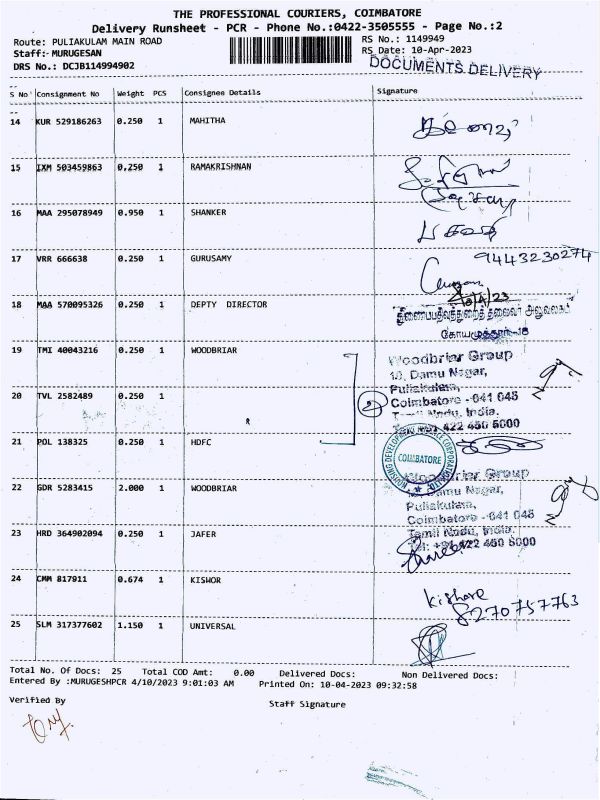 THE PROFESSIONAL COURIERS, COIMBATORE
Delivery Runsheet - PCR - Phone No.:0422-3505555 - Page No.:2
Route: PULIAKULAM MAIN ROAD
RS No.: 1149949
Staff:- MURUGESAN
RS Date: 10-Apr-2023
DRS No.: DCJB114994902
DOCUMENTS DELIVERY
S No Consignment No Weight PCS Consignee Details Signature
14 KUR 529186263 0.250 1 MAHITHA
15 IXM 503459863 0.250 1 RAMAKRISHNAN
16 MAA 295078949 0.950 1 SHANKER
17 VRR 666638 0.250 1 GURUSAMY
9443230274
10/4/23
18 MAA 570095326 0.250 1 DEPTY DIRECTOR
கோயமுத்தூர்-18
19 TMI 40043216 0.250 1 WOODBRIAR
Woodbriar Group
10, Damu Nagar,
Puliakulam,
20 TVL 2582489 0.250 1
2
Coimbatore - 641 045
Tamil Nadu, India.
422 450 5000
21 POL 138325 0.250 1 HDFC
HOUSING DEVELOPMENT FINANCE CORPORATION LTD.
COIMBATORE
22 GDR 5283415 2.000 1 WOODBRIAR
Woodbriar Group
Damu Nagar,
Puliakulam,
Coimbatore - 641 045
Tamil Nadu, India.
Tel: +91 422 450 5000
23 HRD 364902094 0.250 1 JAFER
24 CMM 817911 0.674 1 KISHOR
Kishore
8270757763
25 SLM 317377602 1.150 1 UNIVERSAL
Total No. Of Docs: 25 Total COD Amt: 0.00 Delivered Docs: Non Delivered Docs:
Entered By :MURUGESHPCR 4/10/2023 9:01:03 AM Printed On: 10-04-2023 09:32:58
Verified By
Staff Signature